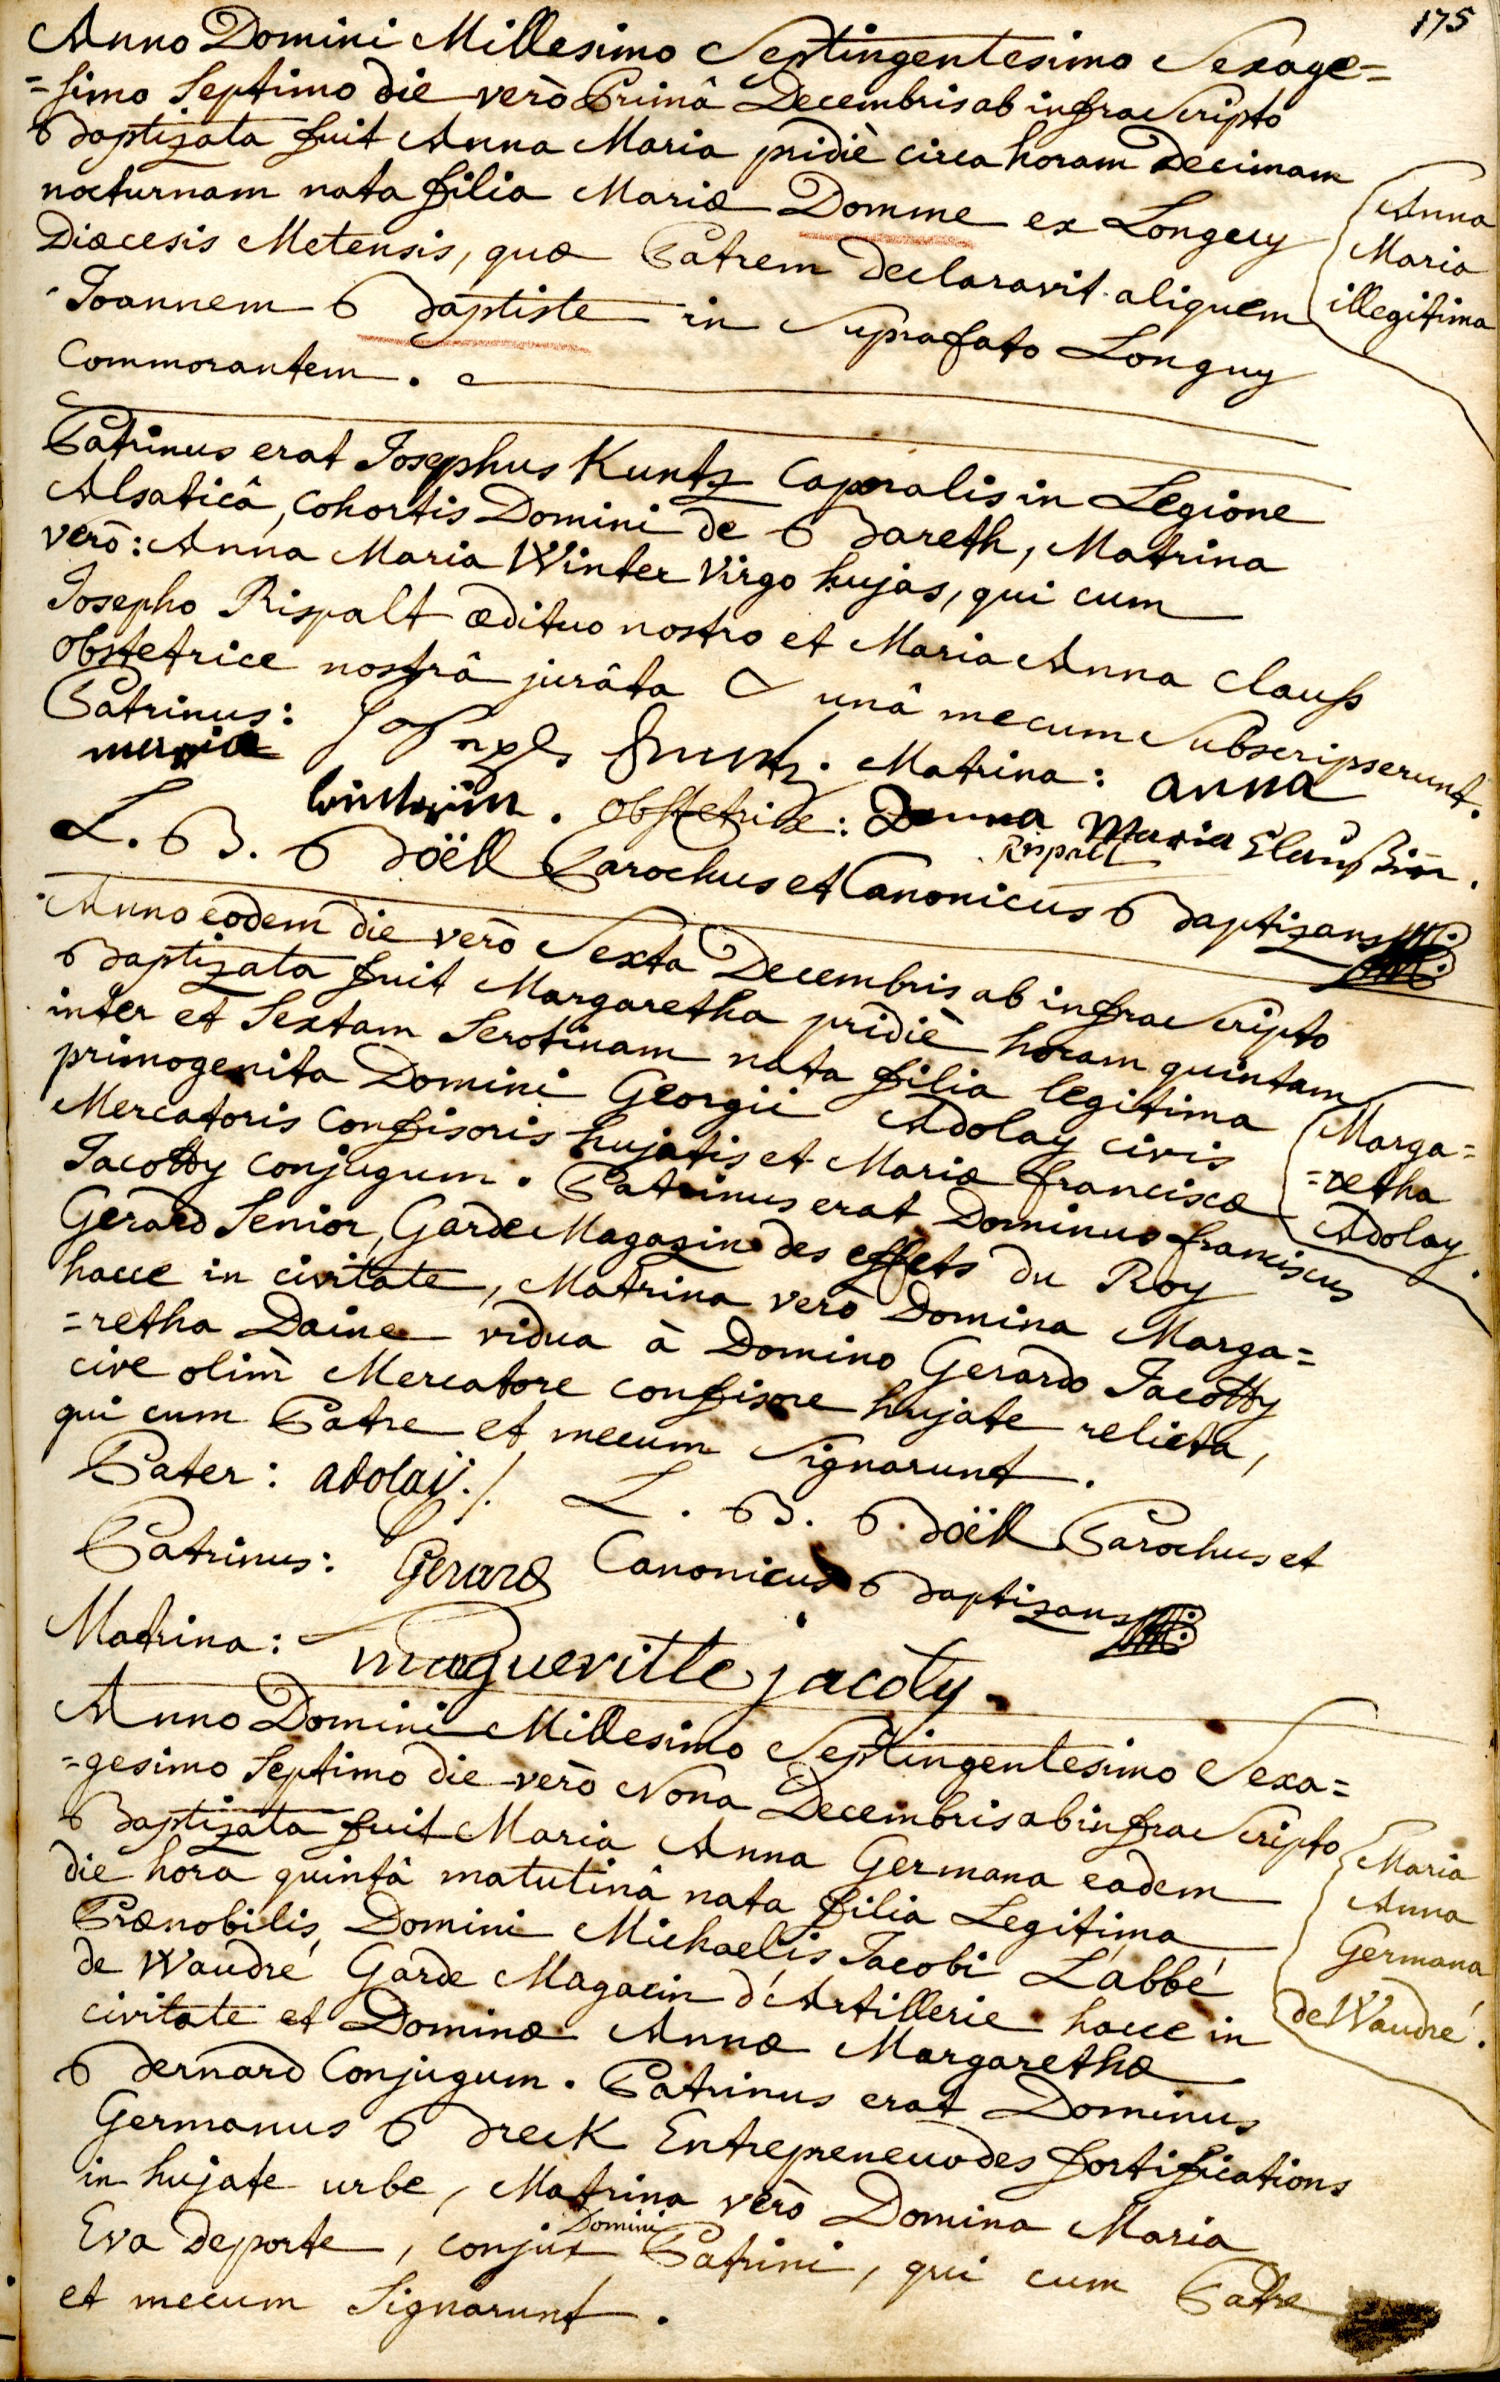 175
Anno Domini Millesimo Septingentesimo Sexage=
=simo Septimo die verò Primâ Decembris ab infrascripto
Baptizata fuit Anna Maria pridiè circa horam Decimam
nocturnam nata filia Mariæ Domme ex Longuy
Diæcesis Metensis, quæ Patrem declaravit aliquem
Joannem Baptiste in Suprafato Longuy
Commorantem.
Anna
Maria
illegitima
Patrinus erat Josephus Kuntz Caporalis in Legione
Alsaticâ, Cohortis Domini de Bareth, Matrina
verò: Anna Maria Winter Virgo hujas, qui cum
Josepho Rispalt ædituo nostro et Maria Anna Clauss
Obstetrice nostrâ jurâta & unâ mecum Subscripserunt.
Patrinus: Joseph Kuntz. Matrina: anna
maria
wintherin. Obstetrice: Anna Maria Claussin.
Rispalt
L. B. Böell Parochus et Canonicus Baptizans
Anno eodem die verò Sexta Decembris ab infrascripto
Baptizata fuit Margaretha pridiè horam quintam
inter et Sextam Serotinam nata filia legitima
primogenita Domini Georgii Adolay civis
Mercatoris Confisoris hujatis et Mariæ Franciscæ
Jacotty conjugum. Patrinus erat Dominus Franciscus
Gerard Senior, Garde Magazin des effets du Roy
hacce in civitate, Matrina verò Domina Marga=
=retha Daine vidua à Domino Gerardo Jacotty
cive olim Mercatore confisore hujate relicta,
qui cum Patre et mecum Signarunt.
Marga=
=retha
Adolay.
Pater: adolaÿ./. L. B. Böell Parochus et
Patrinus: Gerard Canonicus Baptizans
Matrina: magueritte jacoty.
Anno Domini Millesimo Septingentesimo Sexa=
=gesimo Septimo die verò Nona Decembris ab infrascripto
Baptizata fuit Maria Anna Germana eadem
die horâ quintâ matutinâ nata filia Legitima
Prænobilis Domini Michaelis Jacobi L'abbé
de Waudré Garde Magacin d'Artillerie hacce in
civitate et Dominæ Annæ Margarethæ
Bernard Conjugum. Patrinus erat Dominus
Germanus Breck Entrepreneur des fortifications
in hujate urbe, Matrina verò Domina Maria
Eva Deporte, conjux Domini Patrini, qui cum Patre
et mecum Signarunt.
Maria
Anna
Germana
de Waudré.